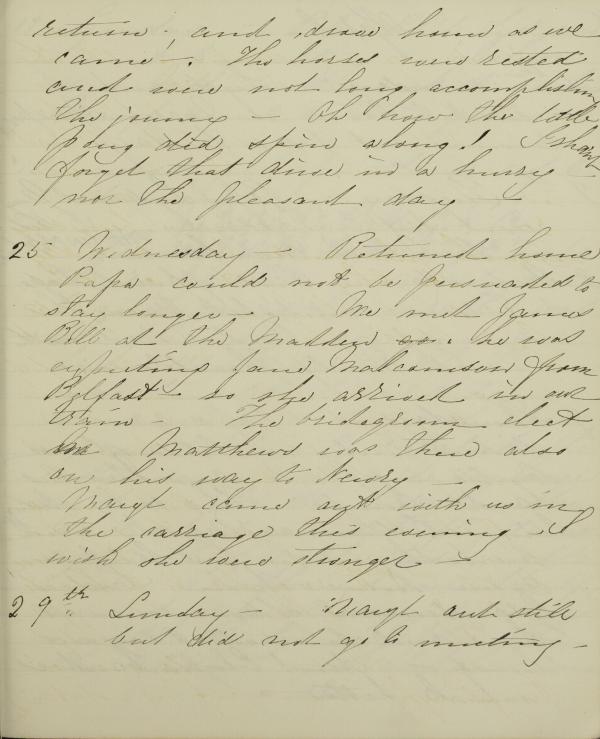 return, and drove home as we
came -. The horses were rested
and were not long accomplishing
the journy - Oh how the little
pony did spin along! I shant
forget that drive in a hurry -
nor the pleasant day -
25 Wednesday - Returned home
Papa could not be persuaded to
stay longer - We met James
Bell at the Madden he was
expecting Jane Malcomson from
Belfast - so she arrived in our
train - The bridegroom elect
Matthews was there also
on his way to Newry -
Margt came out with us in
the carriage this evening I
wish she were stronger -
29th Sunday - Margt out still
but did not go to meeting -